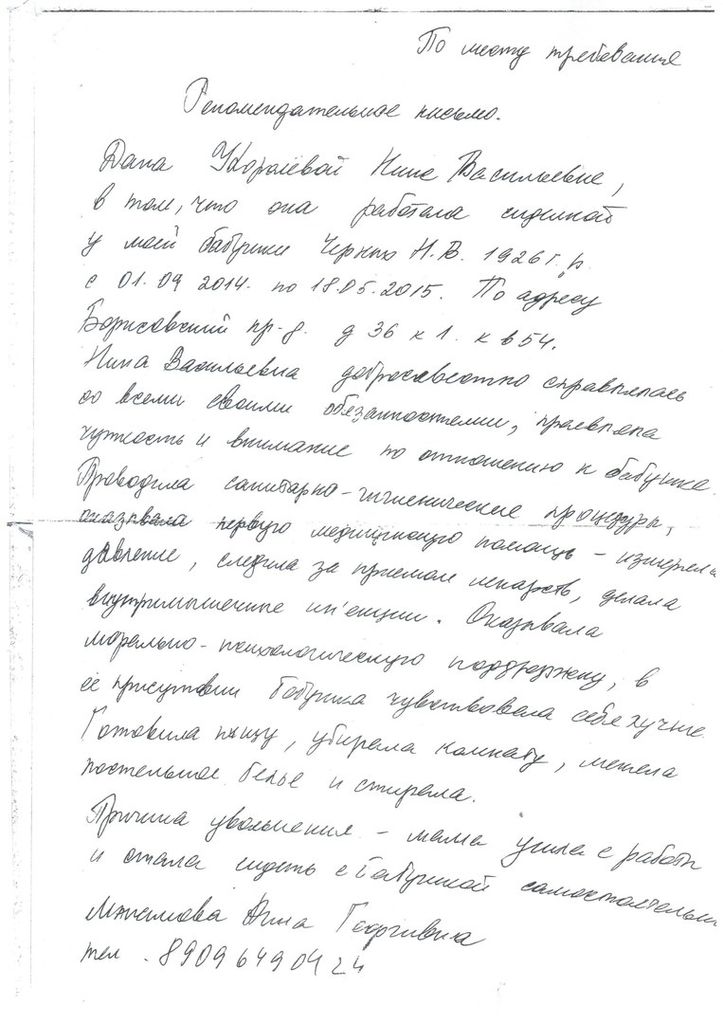 По месту требования
Рекомендательное письмо.
Дана Королевой Нине Васильевне,
в том, что она работала сиделкой
у моей бабушки Черных Н.В. 1926 г.р.
с 01.09 2014. по 18.05.2015. По адресу
Борисовский пр-д. д 36 к 1. кв 54.
Нина Васильевна добросовестно справлялась
со всеми своими обезанностями, проявляла
чуткость и внимание по отношению к бабушке.
Проводила санитарно-гигиенические процедуры,
оказывала первую медицинскую помощь - измеряла
давление, следила за приемом лекарств, делала
внутримышечные ин'екции. Оказывала
морально-психологическую поддержку, в
её присутствии бабушка чувствовала себя лучше.
Готовила пищу, убирала комнату, меняла
постельное белье и стирала.
Причина увольнения - мама ушла с работы
и стала сидеть с бабушкой самостоятельно
Анна Георгивна
тел. 89096490424